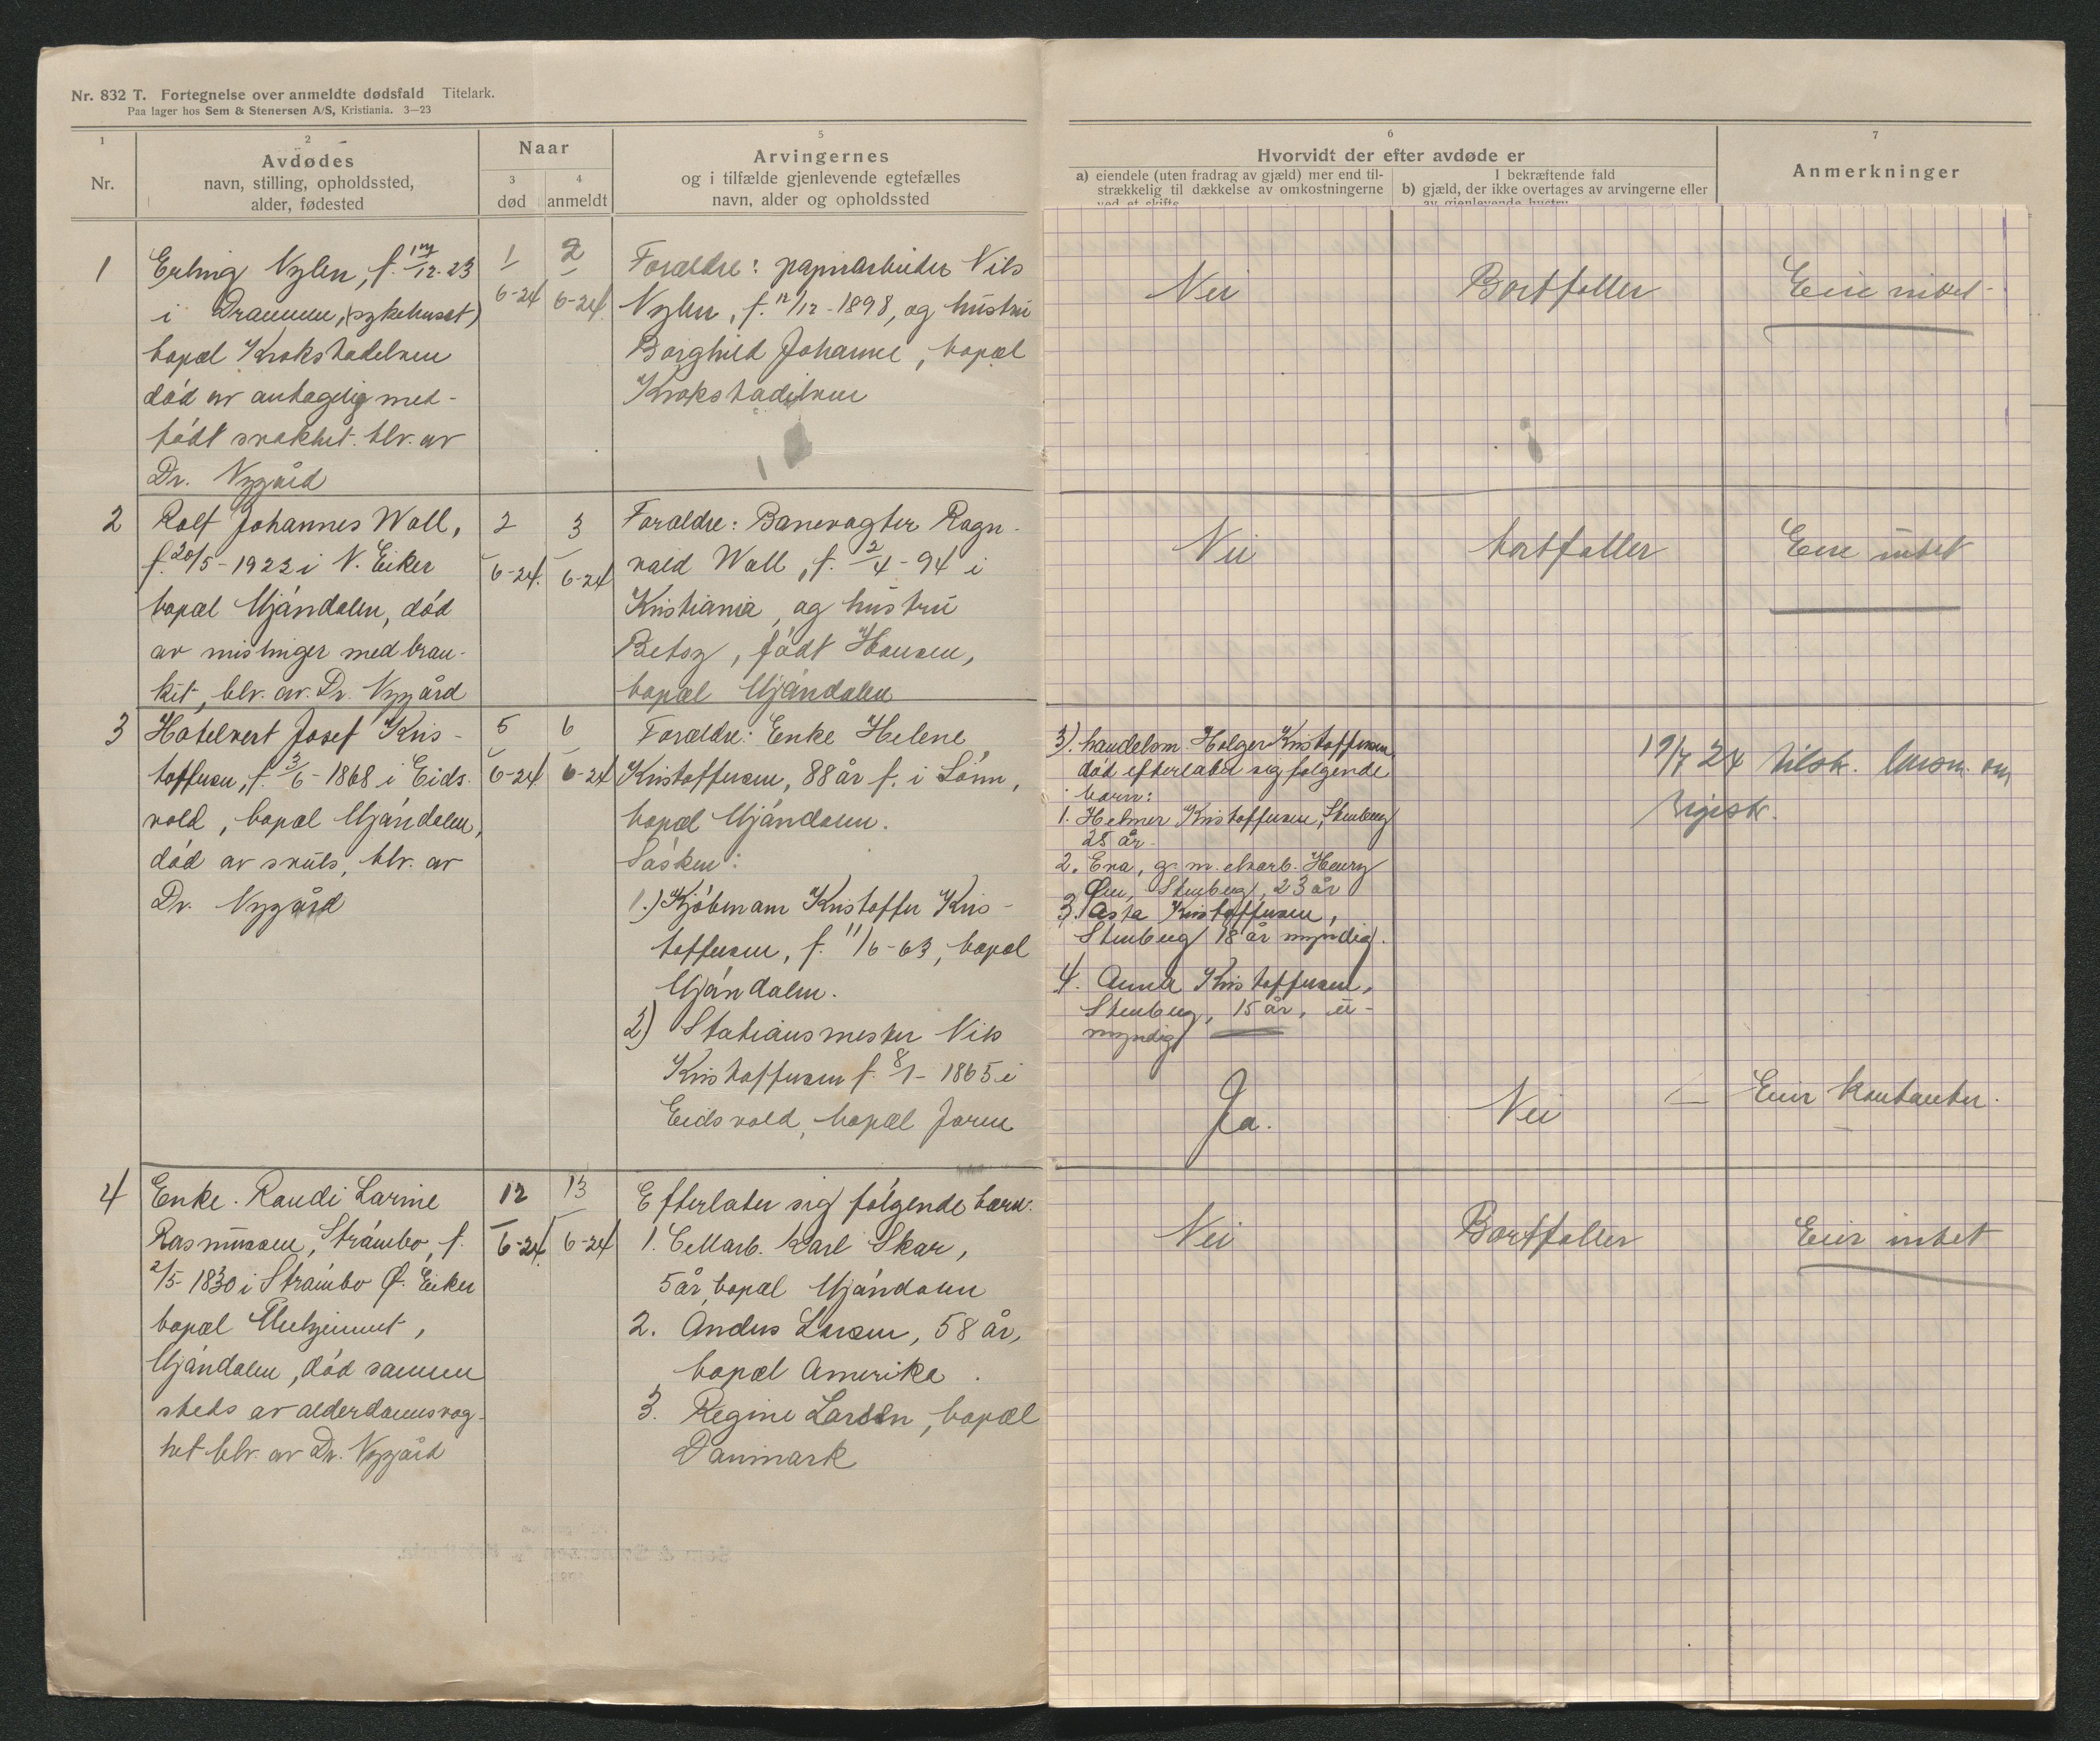 Nr. 832 T. Fortegnelse over anmeldte dødsfald Titelark.
Paa lager hos Sem & Stenersen A/S, Kristiania. 3—23
1
Nr.
2
Avdødes
navn, stilling, opholdssted,
alder, fødested
Naar
3
død
4
anmeldt
5
Arvingernes
og i tilfælde gjenlevende egtefælles
navn, alder og opholdssted
6
Hvorvidt der efter avdøde er
a) eiendele (uten fradrag av gjæld) mer end til-
strækkelig til dækkelse av omkostningerne
ved et skifte
I bekræftende fald
b) gjæld, der ikke overtages av arvingerne eller
av gjenlevende hustru
7
Anmerkninger
1
Erling Nylen, f. 12-23
i Drammen, (sykehuset)
bopæl Krokstadelven
død av antagelig med-
født svakhet. blv. av
Dr. Nygård
1
6-24
2
6-24
Forældre: papirarbeider Nils
Nylen, f. 12/12-1898, og hustru
Borghild Johanne, bopæl
Krokstadelven
Nei
Bortfaller
Eiet intet
2
Rolf Johannes Wall,
f. 20/5-1922 i N. Eiker
bopæl Mjøndalen, død
av mislinger med bron-
kit, blv. av. Dr. Nygård
2
6-24.
3
6-24
Forældre: Banevagter Ragn-
vald Wall, f. 2/4-94 i
Kristiania, og hustru
Betsy, født Hansen,
bopæl Mjøndalen
Nei
bortfaller
Eiet intet
3
Hotelvert Josef Kris-
toffersen, f. 3/6-1868 i Eids-
vold, bopæl Mjøndalen,
død av svuls, blv. av
Dr. Nygård
5
6-24.
6
6-24
Forældre: Enke Helene
Kristoffersen, 88 år f. i Lom,
bopæl Mjøndalen.
Søsken:
1.) Kjøbmann Kristoffer Kris-
toffersen, f. 11/6-63, bopæl
Mjøndalen.
2) Stationsmester Nils
Kristoffersen f. 8/1-1865 i
Eidsvold, bopæl Jaren
3). handelsm. Holger Kristoffersen
død efterlater sig følgende
barn:
1. Helmer Kristoffersen, Stenberg
25 år.
2. Eva, g. m. Henry
Stenberg, 23 år
3. Asta Kristoffersen,
Stenberg 18 år myndig.
4. Anna Kristoffersen,
Stenberg, 15 år, u-
myndig
19/7 24 tilsk. lensm. om
Ja.
Nei
Eier kontanter.
4
Enke. Randi Larine
Rasmussen, Strømbo, f.
2/5-1830 i Strømbo Ø. Eiker
bopæl
Mjøndalen, død sammen
steds av alderdomssvag-
het blv. av Dr. Nygård
12
6-24.
13
6-24
Efterlater sig følgende barn:
1. Cellarb. Karl Skar,
5 år, bopæl Mjøndalen
2. Anders Larsen, 58 år,
bopæl Amerika.
3. Regine Larsen, bopæl
Danmark
Nei
Bortfaller
Eier intet